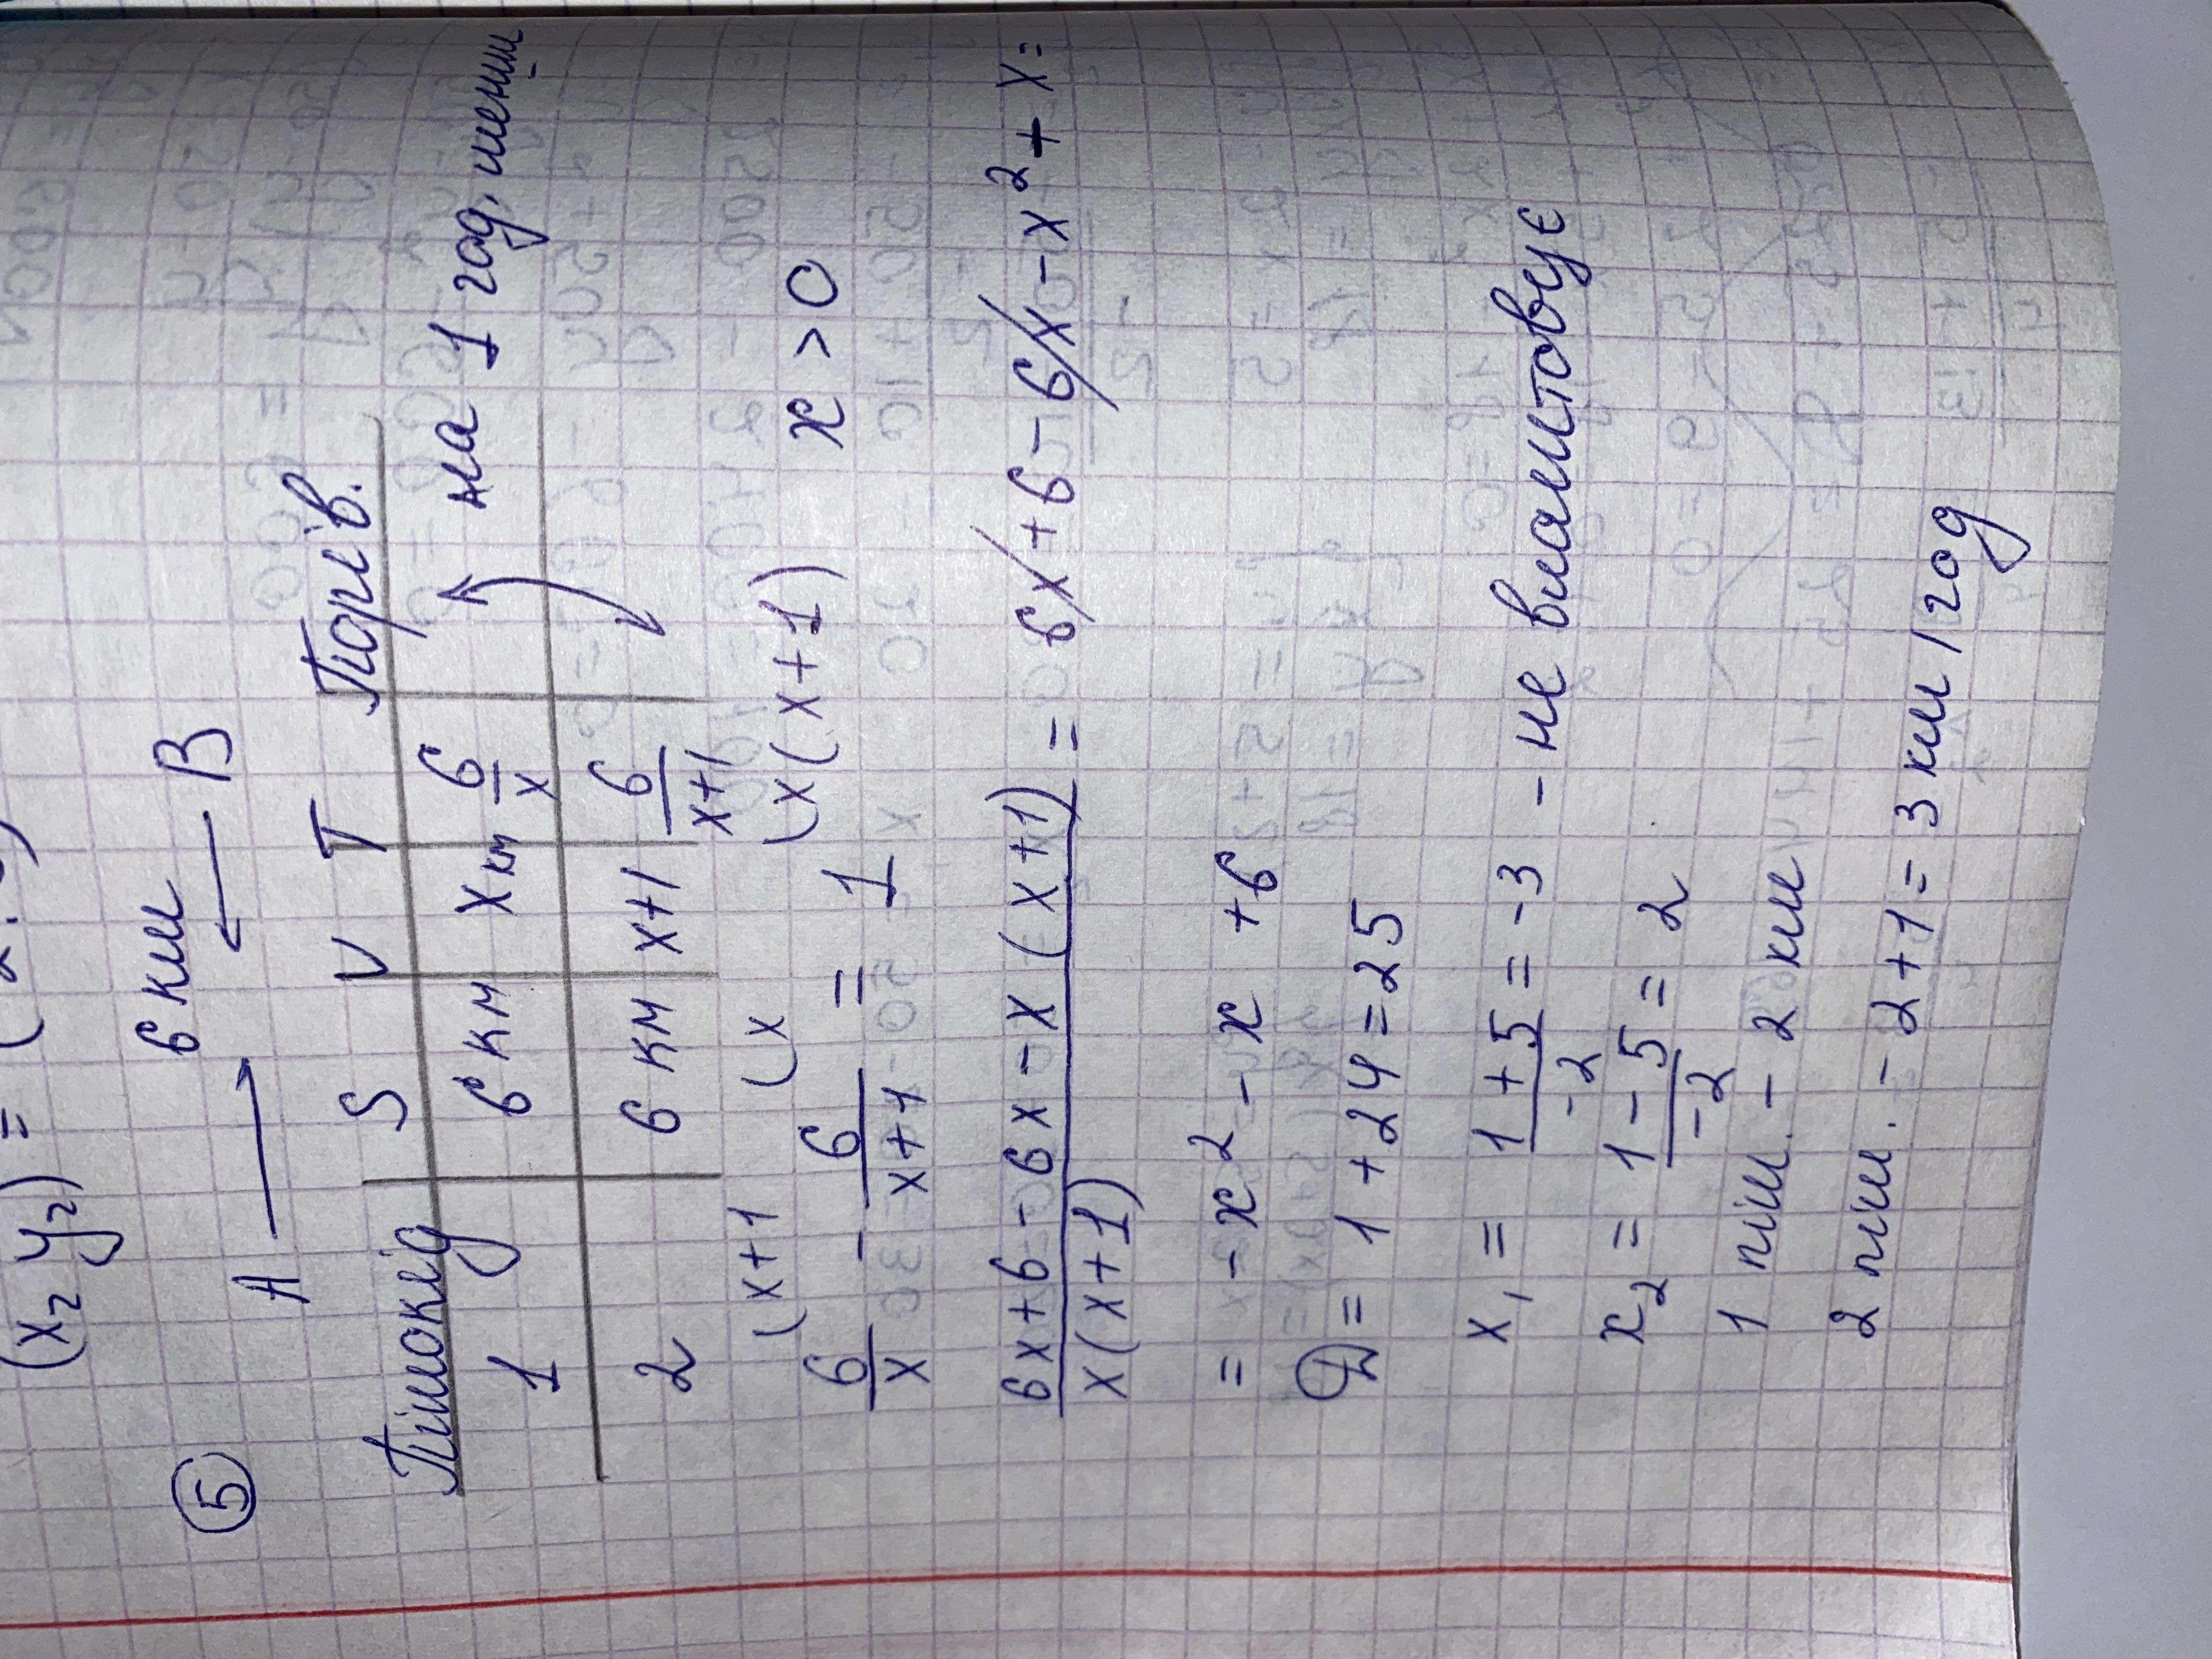 (x₂ y₂) = (2
⑤ 6 км
A → ← B
Пішохід S V T Порів.
1 6 км x км 6/x на 1 год. менш
2 6 км x+1 6/(x+1)
(x+1 (x (x(x+1)
6/x - 6/(x+1) = 1 x > 0
(6x+6-6x-x(x+1))/(x(x+1)) = 6x+6-6x-x²+x=
= -x² - x + 6
D = 1 + 24 = 25
x₁ = (1+5)/(-2) = -3 - не влаштовує
x₂ = (1-5)/(-2) = 2
1 піш. - 2 км
2 піш. - 2+1 = 3 км/год